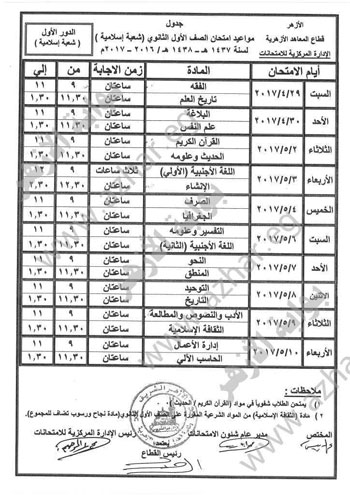 الأزهر
قطاع المعاهد الأزهرية
الإدارة المركزية للامتحانات
جدول
مواعيد امتحان الصف الأول الثانوي (شعبة إسلامية)
لسنة ١٤٣٧هـ - ١٤٣٨هـ / ٢٠١٦ - ٢٠١٧م
الدور الأول
( شعبة إسلامية )
أيام الامتحان المادة زمن الاجابة من إلي
السبت ٢٠١٧/٤/٢٩ الفقه ساعتان ٩ ١١
تاريخ العلم ساعتان ١١,٣٠ ١,٣٠
الأحد ٢٠١٧/٤/٣٠ البلاغة ساعتان ٩ ١١
علم النفس ساعتان ١١,٣٠ ١,٣٠
الثلاثاء ٢٠١٧/٥/٢ القرآن الكريم ساعتان ٩ ١١
الحديث وعلومه ساعتان ١١,٣٠ ١,٣٠
الأربعاء ٢٠١٧/٥/٣ اللغة الأجنبية (الأولي) ثلاث ساعات ٩ ١٢
الإنشاء ساعتان ١٢,٣٠ ٢,٣٠
الخميس ٢٠١٧/٥/٤ الصرف ساعتان ٩ ١١
الجغرافيا ساعتان ١١,٣٠ ١,٣٠
السبت ٢٠١٧/٥/٦ التفسير وعلومه ساعتان ٩ ١١
اللغة الأجنبية (الثانية) ساعتان ١١,٣٠ ١,٣٠
الأحد ٢٠١٧/٥/٧ النحو ساعتان ٩ ١١
المنطق ساعتان ١١,٣٠ ١,٣٠
الاثنين ٢٠١٧/٥/٨ التوحيد ساعتان ٩ ١١
التاريخ ساعتان ١١,٣٠ ١,٣٠
الثلاثاء ٢٠١٧/٥/٩ الأدب والنصوص والمطالعة ساعتان ٩ ١١
الثقافة الإسلامية ساعتان ١١,٣٠ ١,٣٠
الأربعاء ٢٠١٧/٥/١٠ إدارة الأعمال ساعتان ٩ ١١
الحاسب الآلي ساعتان ١١,٣٠ ١,٣٠
ملاحظات :
١) يمتحن الطلاب شفوياً في مواد (القرآن الكريم) (الحديث)
٢) مادة (الثقافة الإسلامية) من المواد الشرعية المقررة علي الصف الأول الثانوي (مادة نجاح ورسوب تضاف للمجموع).
المختص مدير عام شئون الامتحانات رئيس الإدارة المركزية للامتحانات
يعتمد،
رئيس القطاع